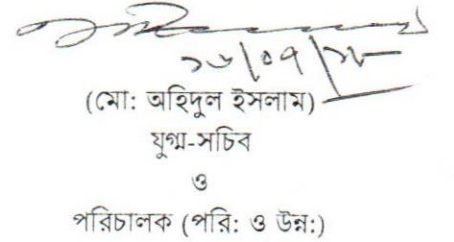 (মো: অহিদুল ইসলাম)
যুগ্ম-সচিব
ও
পরিচালক (পরি: ও উন্ন:)